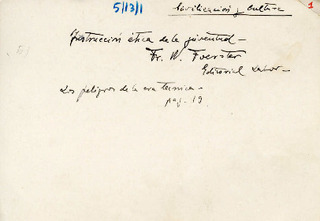 5/13/1
Civilización y Cultura
1
Instrucción ética de la juventud—
Fr. W. Foerster
Editorial Labor—
Los peligros de la era técnica—
pag. 19